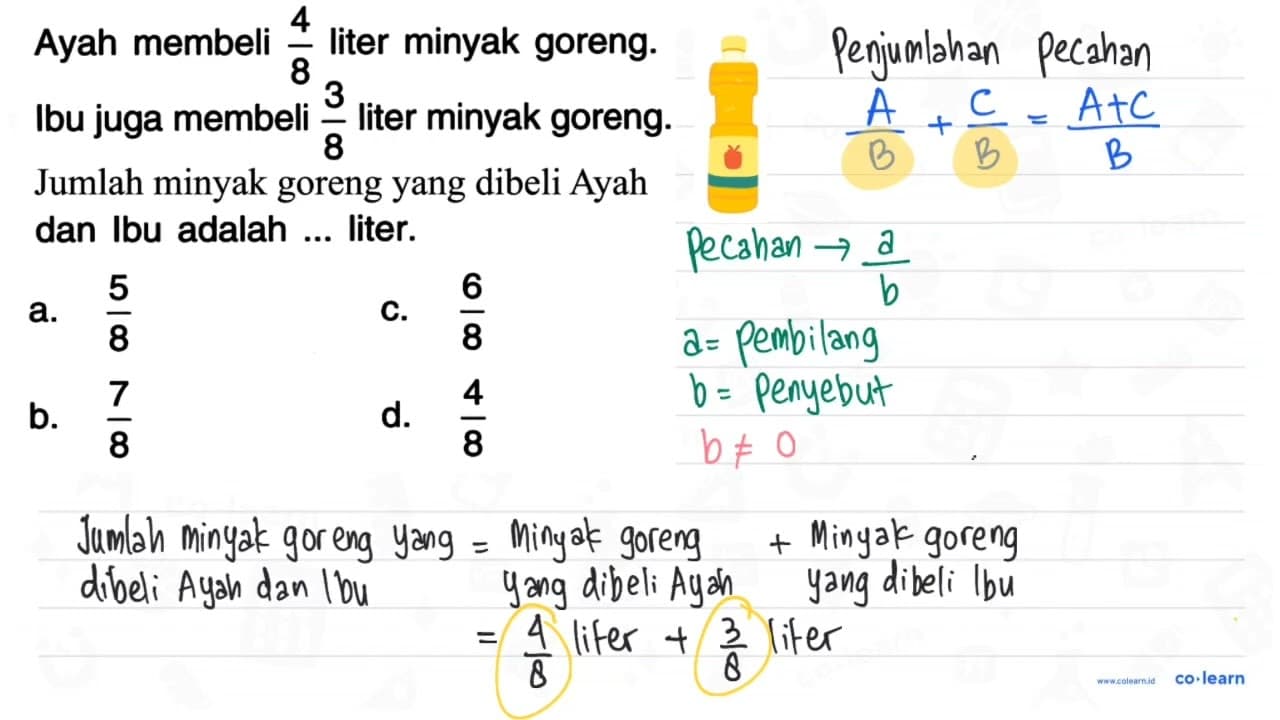 Ayah membeli 4/8 liter minyak goreng.
Ibu juga membeli 3/8 liter minyak goreng.
Jumlah minyak goreng yang dibeli Ayah
dan Ibu adalah ... liter.
a. 5/8
c. 6/8
b. 7/8
d. 4/8
Penjumlahan Pecahan
A/B + C/B = A+C/B
Pecahan → a/b
a = Pembilang
b = Penyebut
b ≠ 0
Jumlah minyak goreng yang = Minyak goreng + Minyak goreng
dibeli Ayah dan Ibu yang dibeli Ayah yang dibeli Ibu
= 4/8 liter + 3/8 liter
www.colearn.id co·learn